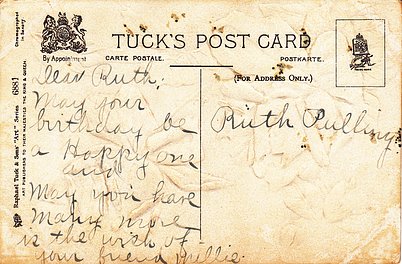 Chromographed
in Saxony.
By Appointment.
TUCK'S POST CARD
CARTE POSTALE.
POSTKARTE.
(FOR ADDRESS ONLY.)
Raphael Tuck & Sons' "Art" Series 6881
ART PUBLISHERS TO THEIR MAJESTIES THE KING & QUEEN.
Dear Ruth.
May your
birthday be
a Happy one
and
May you have
Many more
is the wish of
your friend Millie.
Ruth Pulling